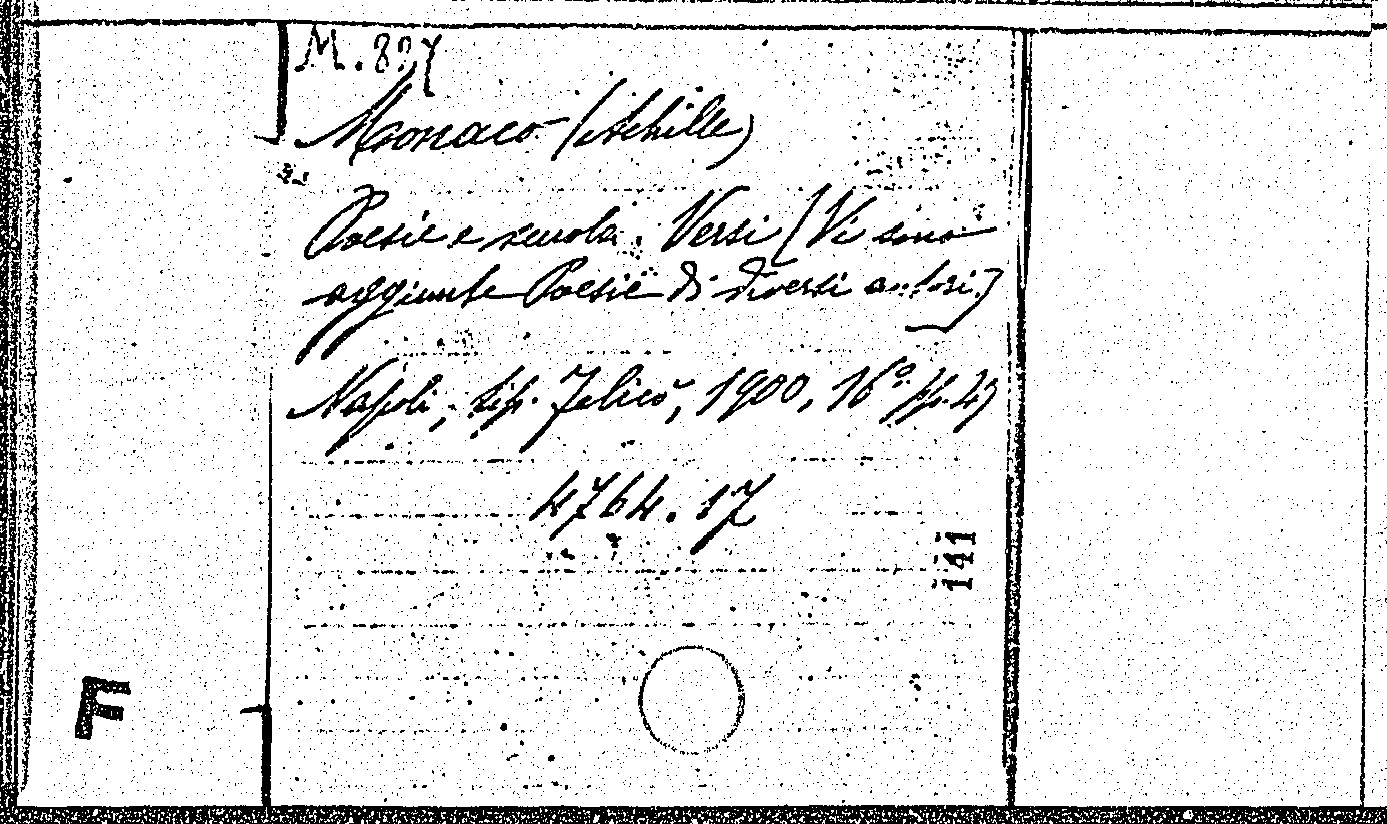 M. 897
Monaco (Achille)
Poesie e scuola. Versi [Vi sono
aggiunte Poesie di diversi autori.]
Napoli, tip. Jelicò, 1900, 16° pp.
4764.17
141
F